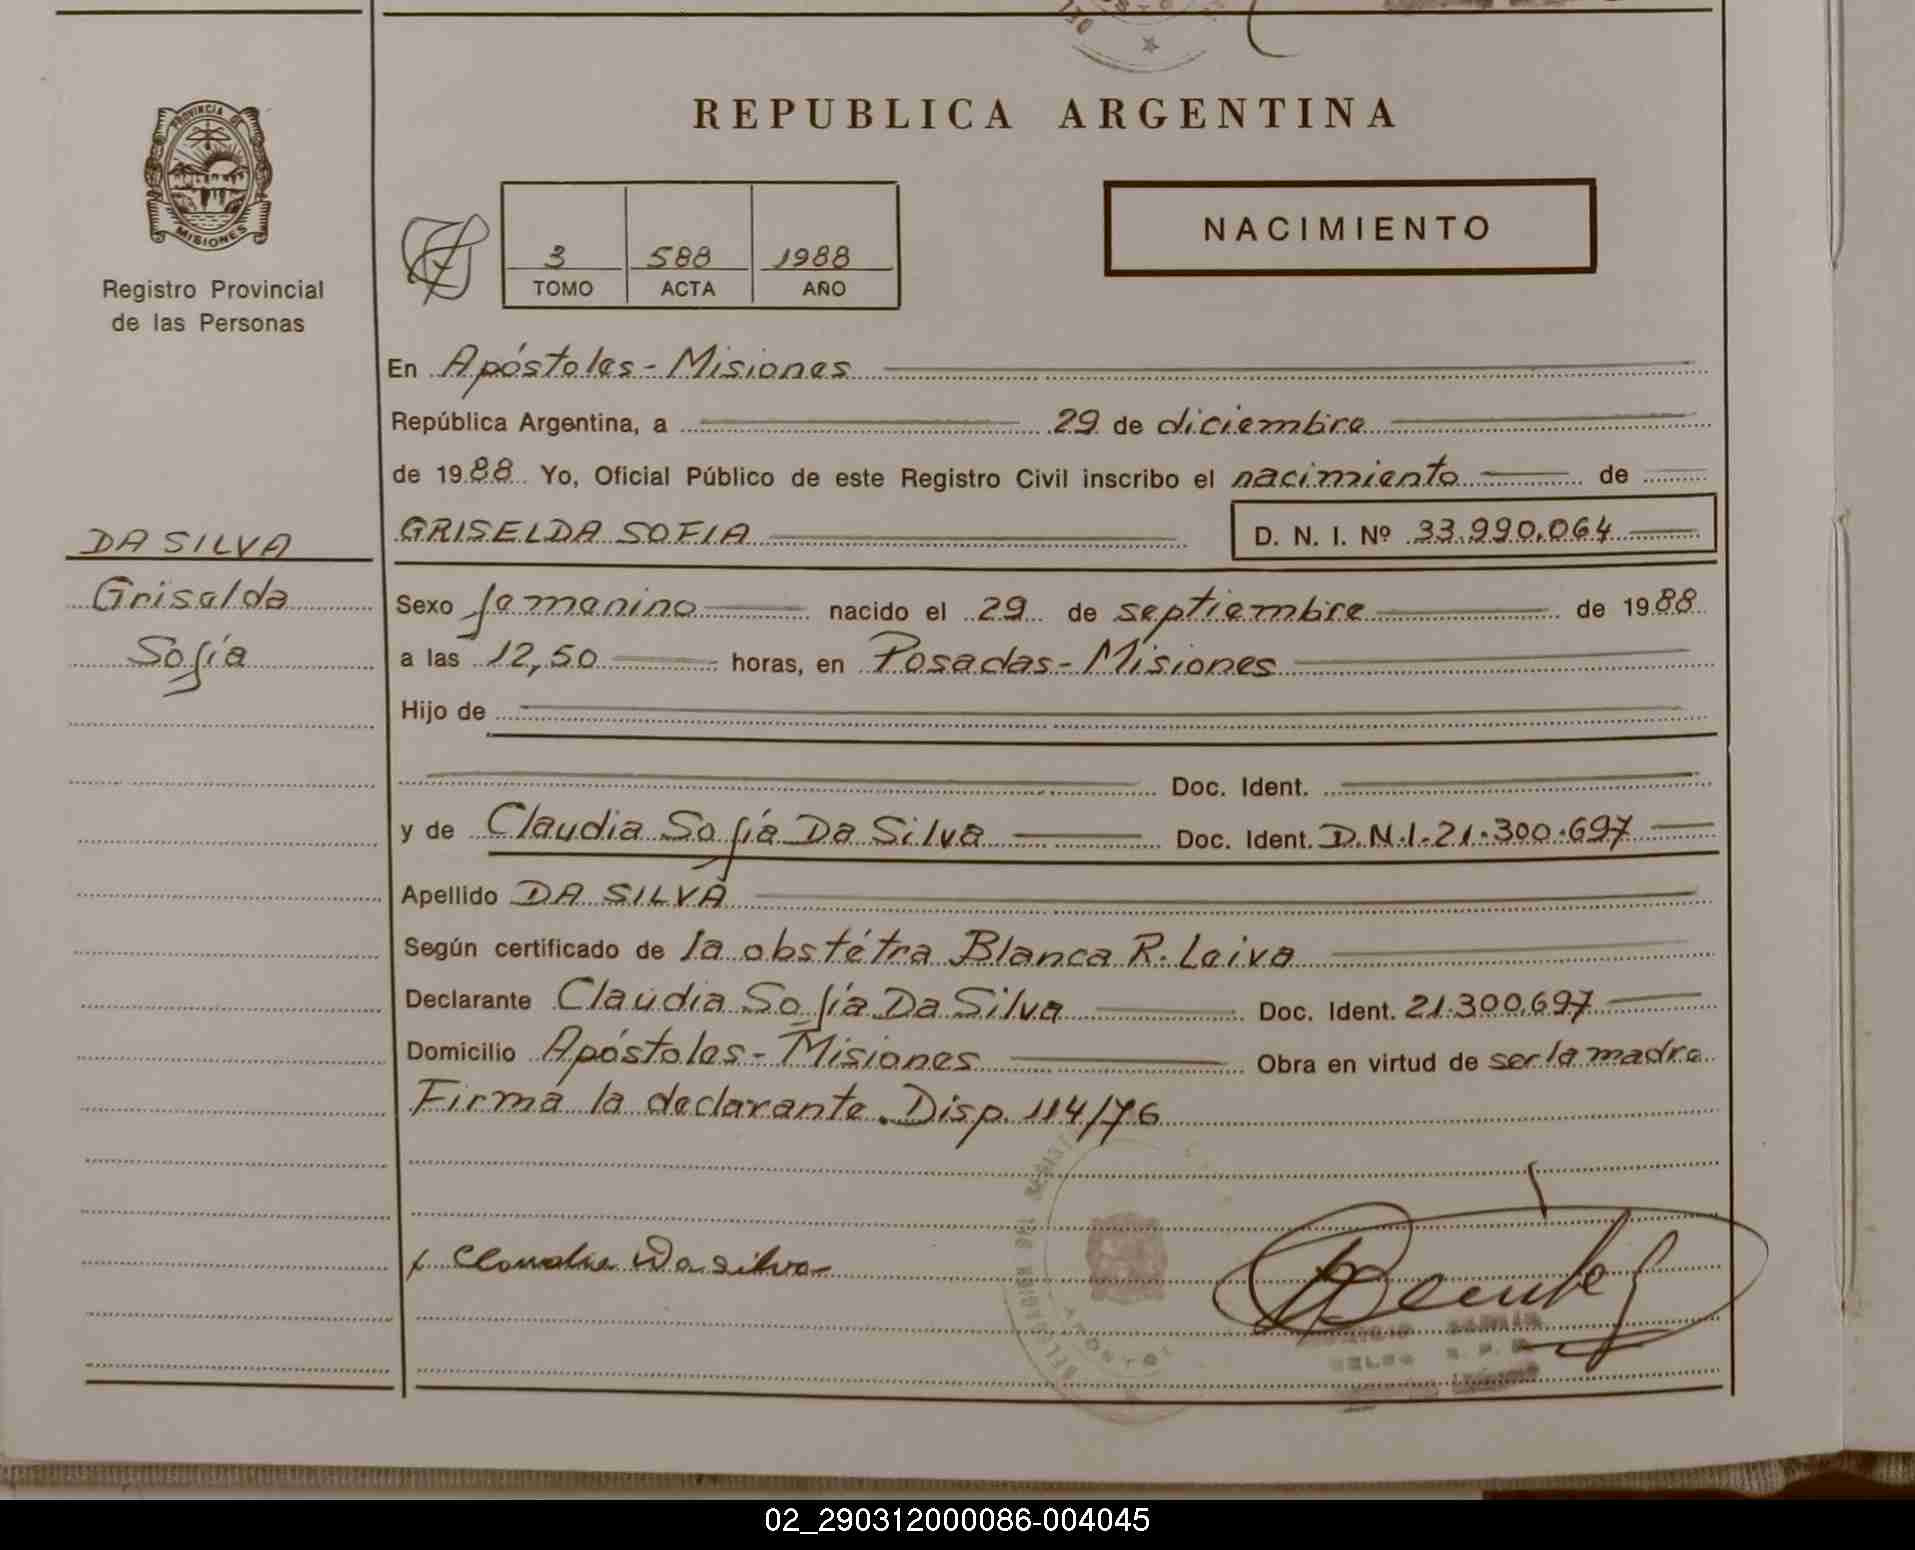 PROVINCIA DE
MISIONES
Registro Provincial
de las Personas
DA SILVA
Griselda
Sofía
REPUBLICA ARGENTINA
NACIMIENTO
3 588 1988
TOMO ACTA AÑO
En Apóstoles - Misiones
República Argentina, a 29 de diciembre
de 1988 Yo, Oficial Público de este Registro Civil inscribo el nacimiento de
GRISELDA SOFIA D. N. I. Nº 33.990.064
Sexo femenino nacido el 29 de septiembre de 1988
a las 12,50 horas, en Posadas - Misiones
Hijo de
Doc. Ident.
y de Claudia Sofía Da Silva Doc. Ident. D.N.I-21.300.697
Apellido DA SILVA
Según certificado de la obstétra Blanca R. Leiva
Declarante Claudia Sofía Da Silva Doc. Ident. 21.300.697
Domicilio Apóstoles - Misiones Obra en virtud de ser la madre
Firma la declarante. Disp. 114/76
x Claudia Da silva
02_290312000086-004045